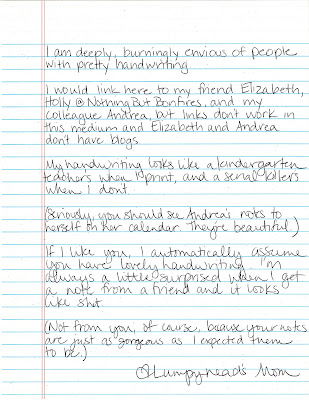 I am deeply, burningly envious of people
with pretty handwriting.
I would link here to my friend Elizabeth,
Holly @ Nothing But Bonfires, and my
colleague Andrea, but links don't work in
this medium and Elizabeth and Andrea
don't have blogs.
My handwriting looks like a kindergarten
teacher's when I print, and a serial killer's
when I don't.
(Seriously, you should see Andrea's notes to
herself on her calendar. They're beautiful.)
If I like you, I automatically assume
you have lovely handwriting. I'm
always a little surprised when I get
a note from a friend and it looks
like shit.
(Not from you, of course, because your notes
are just as gorgeous as I expected them
to be.)
Lumpyhead's Mom